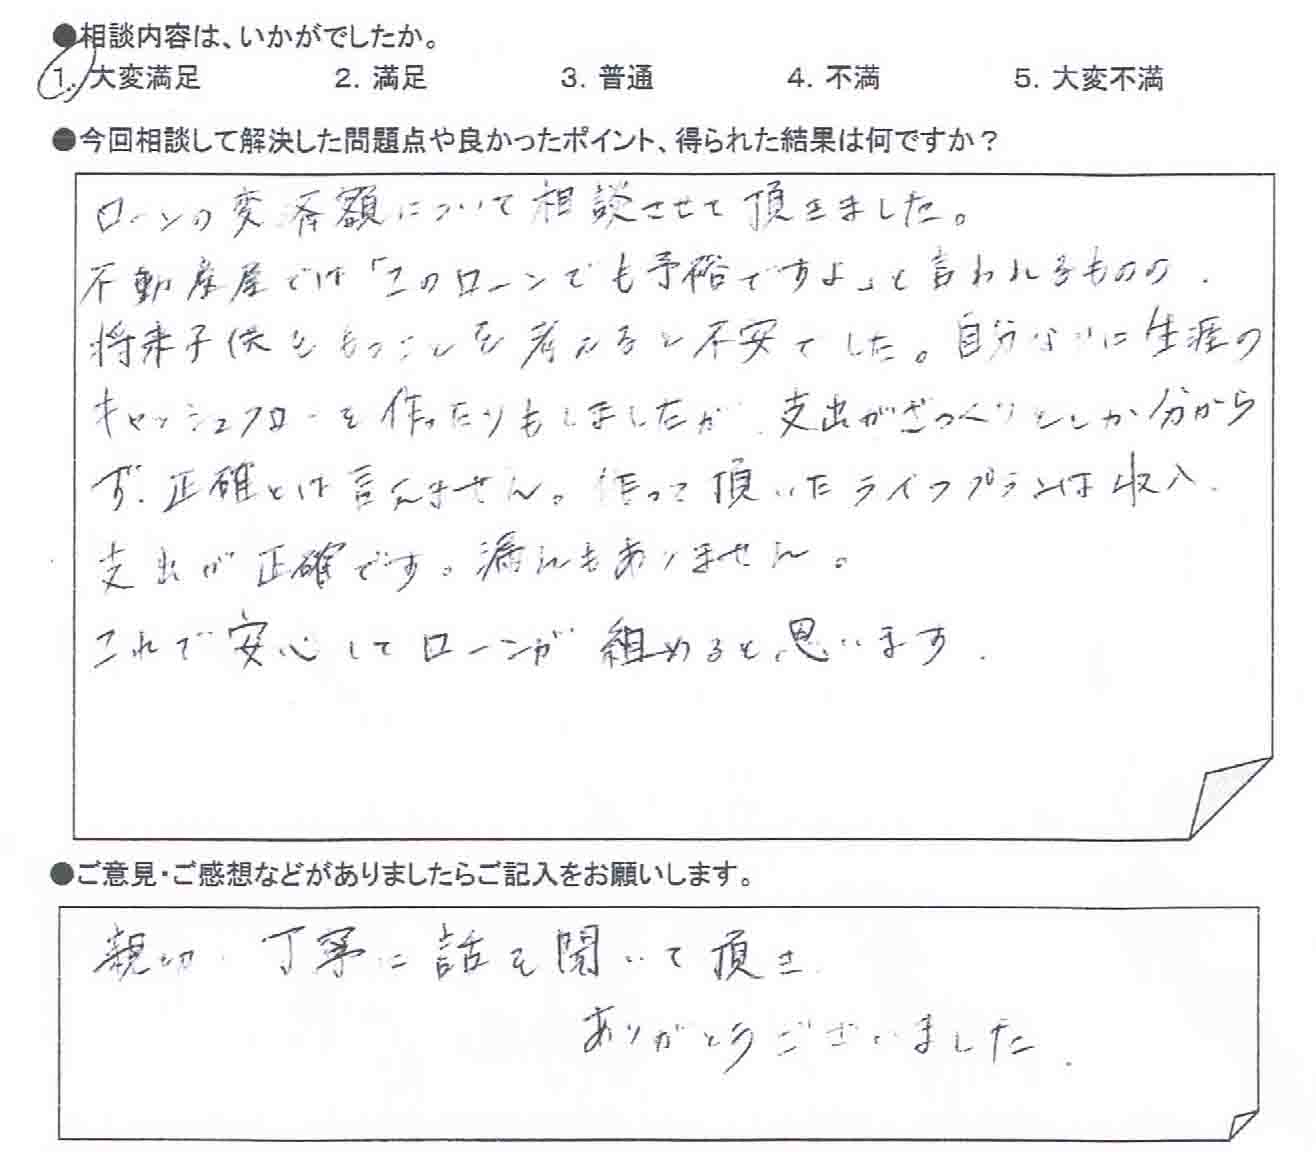 ●相談内容は、いかがでしたか。
1. 大変満足 2. 満足 3. 普通 4. 不満 5. 大変不満
●今回相談して解決した問題点や良かったポイント、得られた結果は何ですか？
ローンの変済額について相談させて頂きました。
不動産屋では「このローンでも予裕ですよ」と言われるものの、
将来子供をもつことを考えると不安でした。自分なりに生涯の
キャッシュフローを作ったりもしましたが、支出がざっくりとしか分から
ず、正確とは言えません。作って頂いたライフプランは収入、
支出が正確です。漏れもありません。
これで安心してローンが組めると思います。
●ご意見・ご感想などがありましたらご記入をお願いします。
親切、丁寧に話を聞いて頂き、
ありがとうございました。